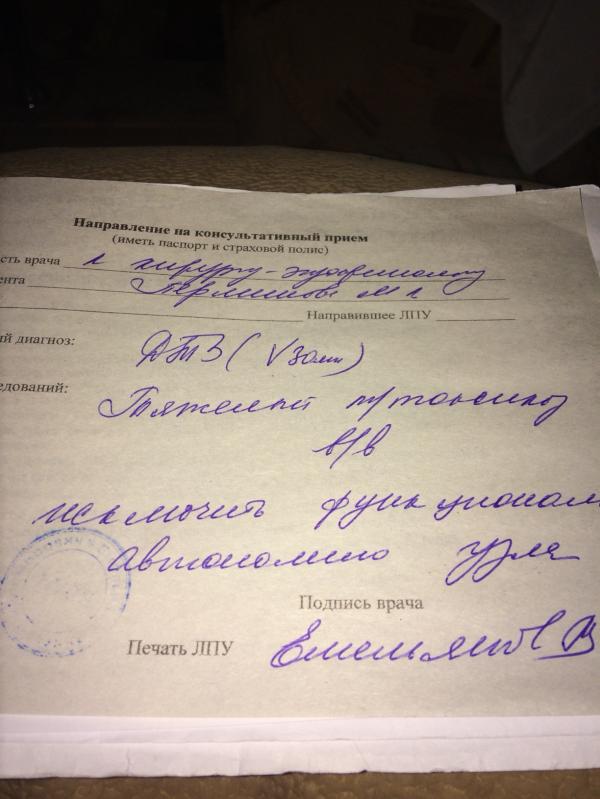 Направление на консультативный прием
(иметь паспорт и страховой полис)
сть врача к хирургу-эндокринологу
ента
Направившее ЛПУ
ый диагноз:
ДТЗ (
едований:
Тяжелый т/токсикоз
в/в
исключить функционал
автономию узла
Подпись врача
Печать ЛПУ